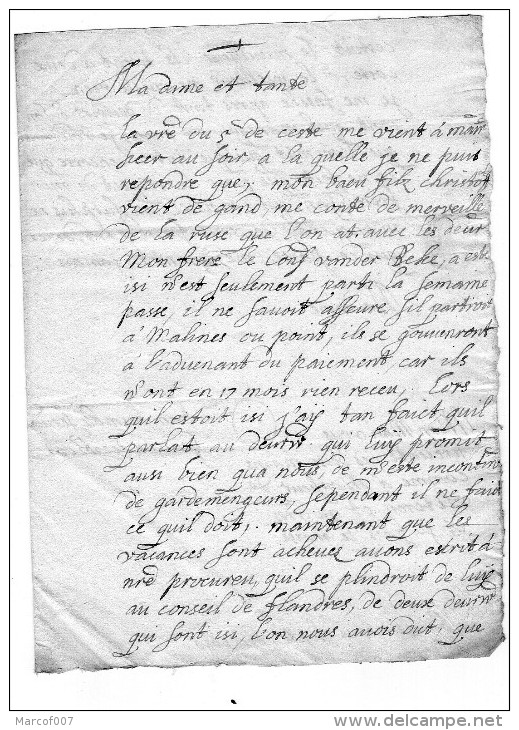 +
Madame et tante
la vre du 5e de ceste me vient a main
heer au soir, a la quelle je ne puis
repondre que, mon baeu filz Christof
vient de gand, me conte de merveille
de la ruse que l'on at avec les deur
Mon frere le Cons vander Beke, a este
isi n'est seulement parti la semaine
passe, il ne savoit asseure, s'il partiroit
a Malines ou point, ils se gouvenront
a l'advenant du paiement car ils
n'ont en 17 mois rien receu, Lors
quil estoit isi j'aij tan faict quil
parlat au deurwr qui luij promit
ausi bien qua nous de mestre
de gardemengeurs, sependant il ne faict
ce quil doit, maintenant que les
vacances sont acheves avons escrit a
nre procureu, quil se plindroit de luij
au conseil de flandres, de deux deurwr
qui sont isi, l'on nous avois dit, que
Marcof007
www.delcampe.net